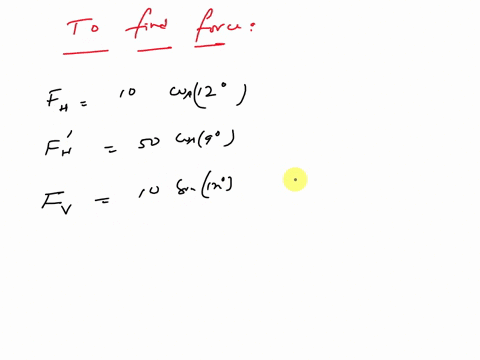 To find force:
F_H = 10 cos(12°)
F_H' = 50 cos(9°)
F_V = 10 sin(12°)